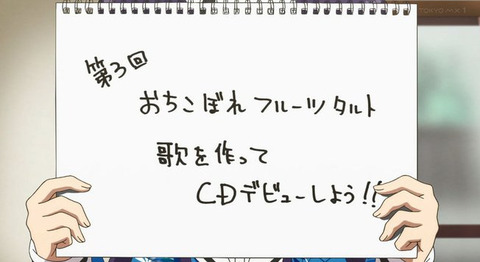 TOKYO MX 1
第3回
おちこぼれフルーツタルト
歌を作って
CDデビューしよう!!